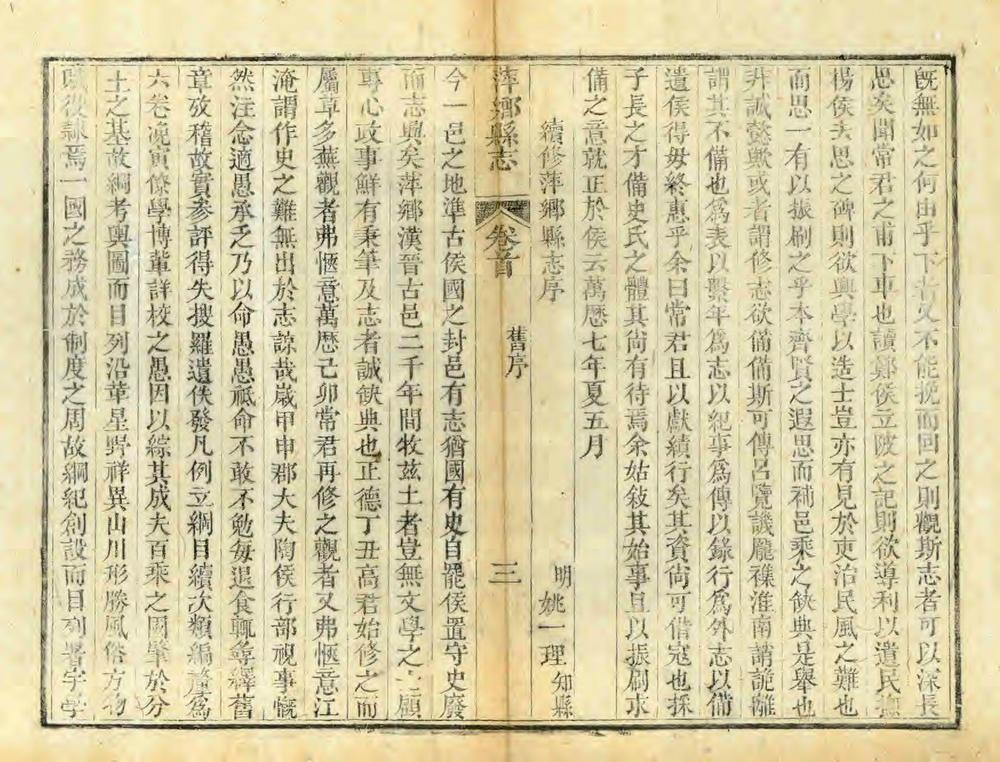 既無如之何由乎下者又不能挽而回之則觀斯志者可以深長
思矣聞常君之甫下車也讀鄭侯立陂之記則欲導利以遺民
楊侯去思之碑則欲興學以造士豈亦有見於吏治民風之難也
而思一有以振刷之乎本齊賢之遐思而補邑乘之缺典是舉也
非誠懿歟或者謂修志欲備備斯可傳呂覽譏龐襍淮南謂詭離
謂其不備也為表以繫年為志以紀事為傳以錄行為外志以備
遺侯得毋終惠乎余曰常君且以獻績行矣其資尚可借寇也採
子長之才備史氏之體其尚有待焉余姑敍其始事且以振刷求
備之意就正於侯云萬歷七年夏五月
續修萍鄉縣志序
明 姚一理 知縣
萍鄉縣志 卷首 舊序 三
今一邑之地準古侯國之封邑有志猶國有史自罷侯置守史廢
而志興矣萍鄉漢晉古邑二千年間牧茲土者豈無文學之 顧
專心政事鮮有秉筆及志者誠缺典也正德丁丑高君始修之而
屬草多蕪觀者弗愜意萬歷己卯常君再修之觀者又弗愜意江
淹謂作史之難無出於志諒哉歲甲申郡大夫陶侯行部視事慨
然注念適愚承乏乃以命愚愚祗命不敢不勉每退食輒尋繹舊
章攷稽故實參評得失搜羅遺佚發凡例立綱目續次類編釐為
六卷浼寅僚學博軰詳校之愚因以綜其成夫百乘之國肇於分
土之基故綱考輿圖而目列沿革星野祥異山川形勝風俗方物
 後隸焉一國之務成於制度之周故綱紀創設而目列署宇學